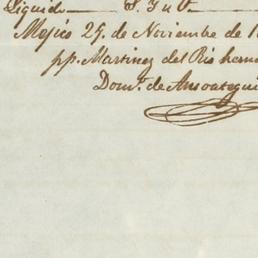 Liquido S. I u O.
Mejico 29. de Noviembre de 1
pp. Martinez del Rio herm
Dom.º de Ansoategui